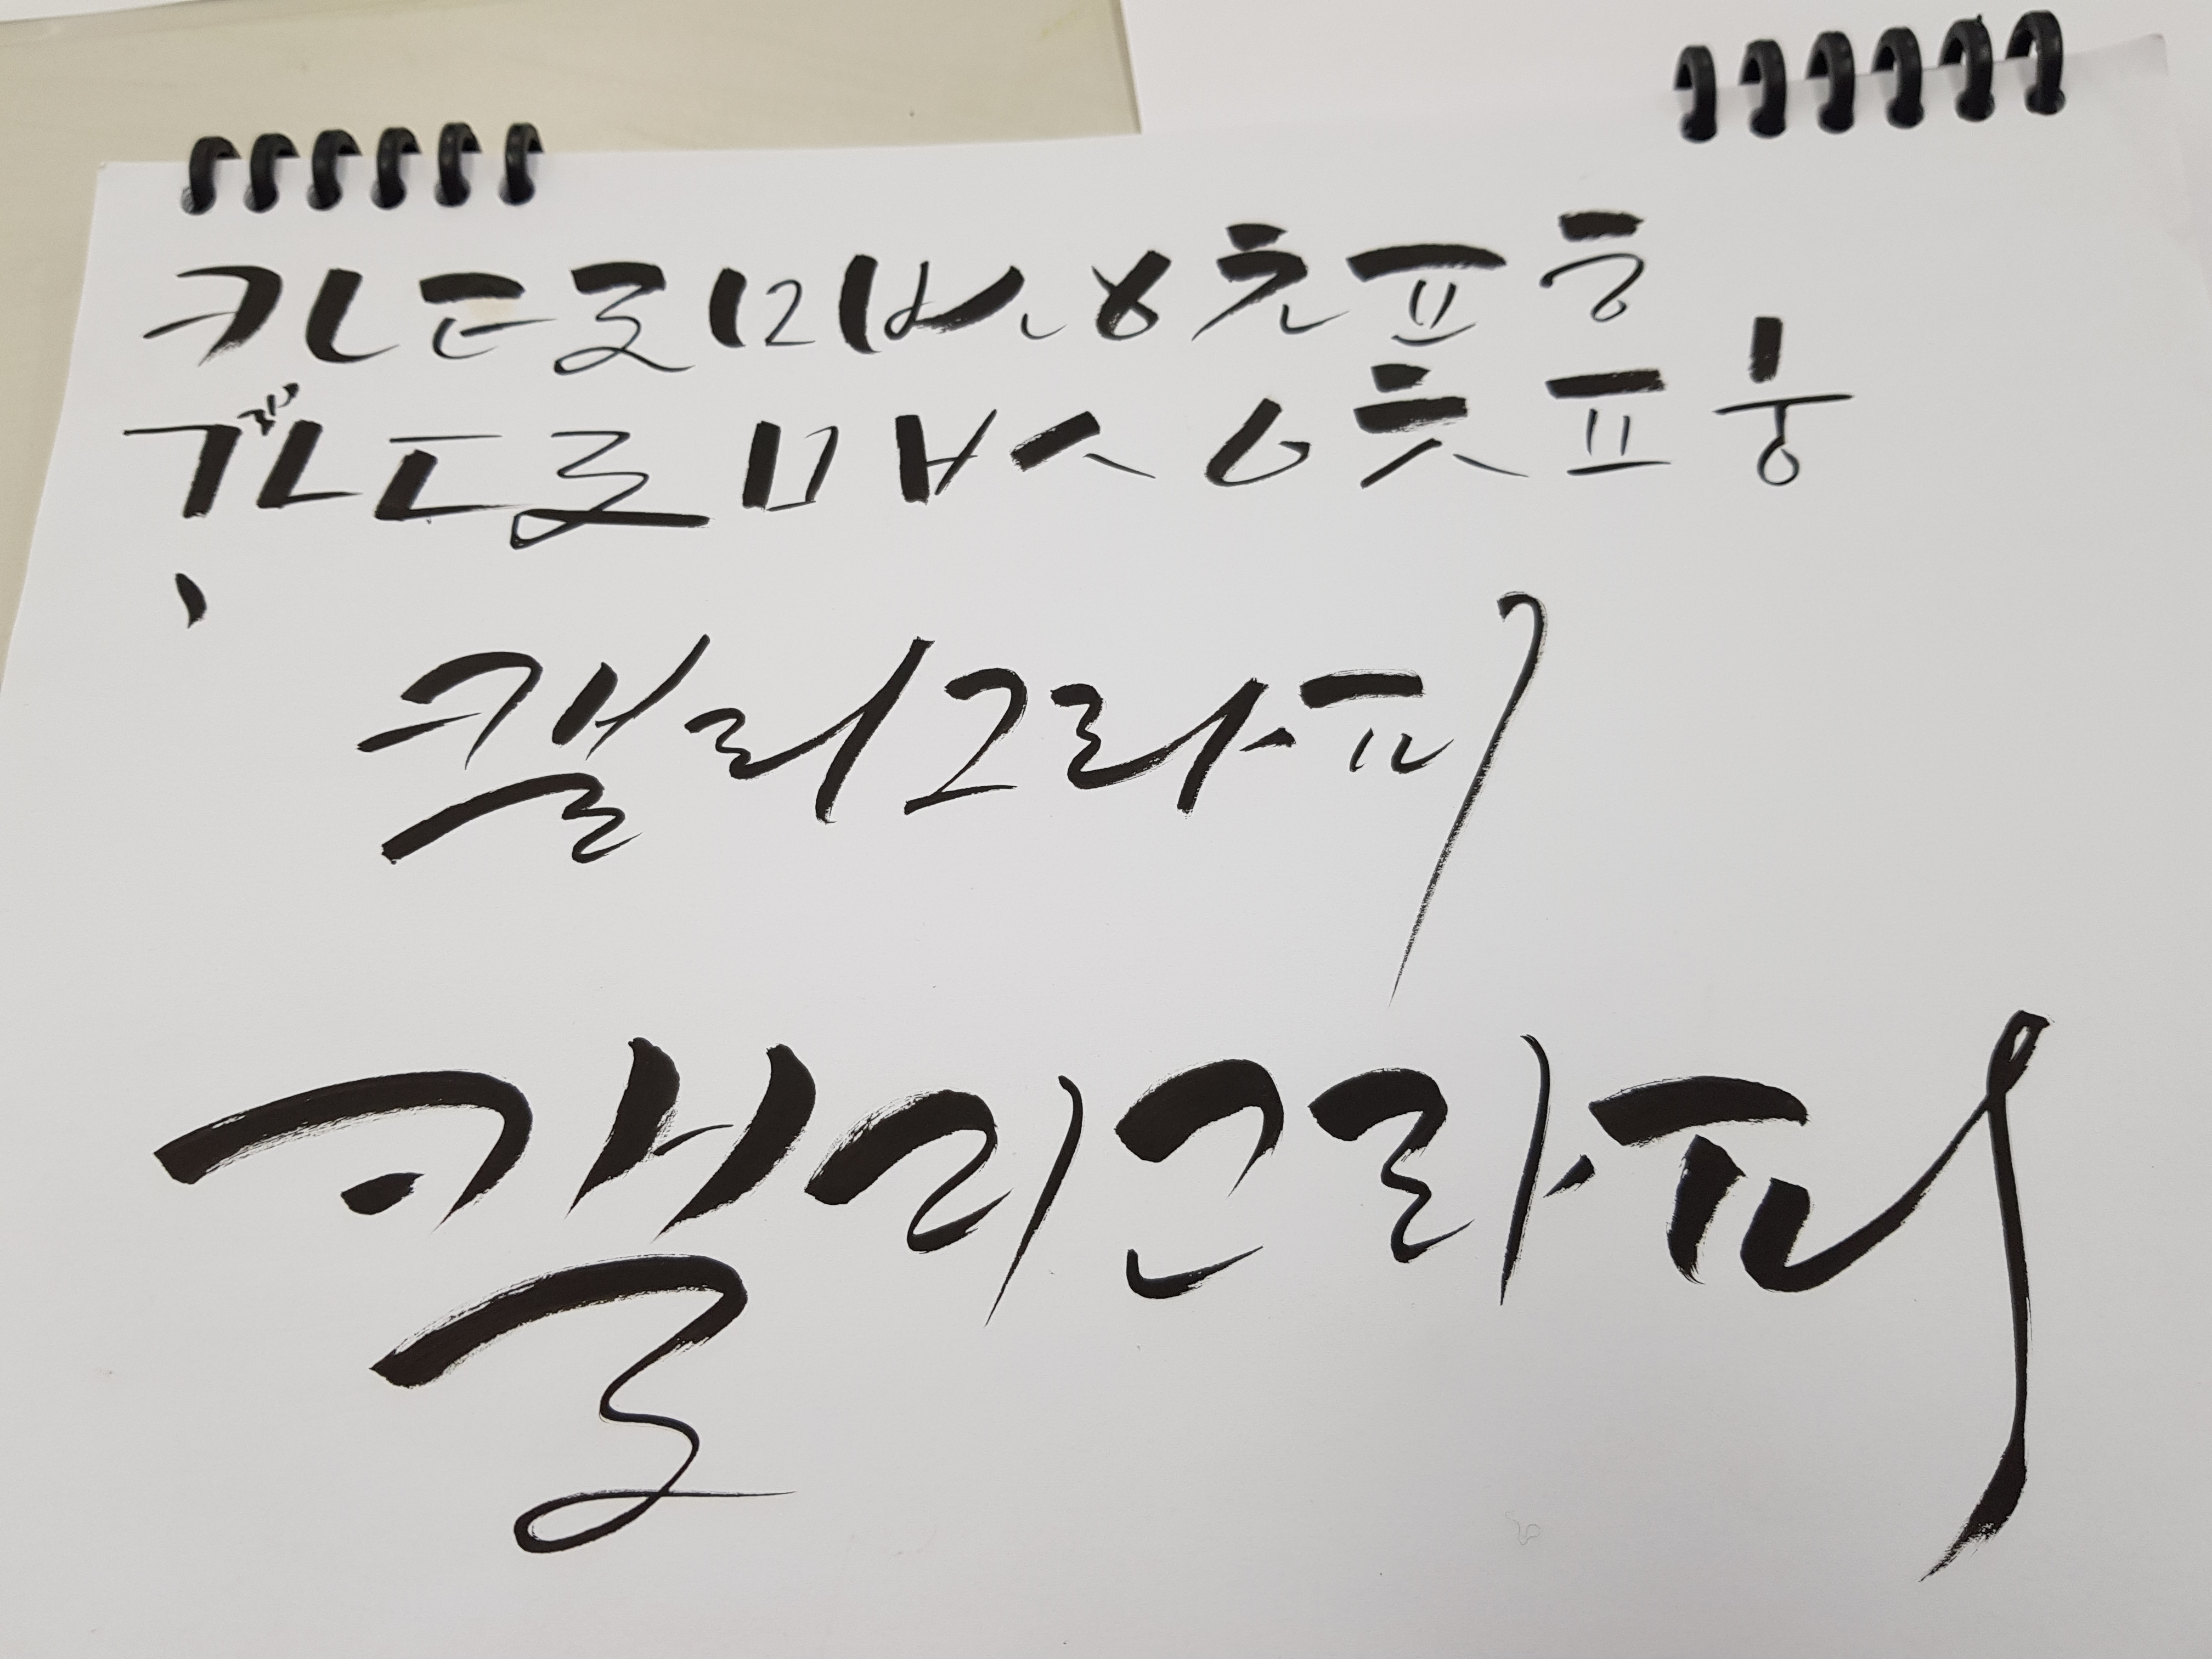 ㅋㄴㄷㄹㅁㅂㅅㅇㅊㅍㅎ
ㅋㄴㄷㄹㅁㅂㅅㅇㅊㅍㅎ
캘리그라피
캘리그라피